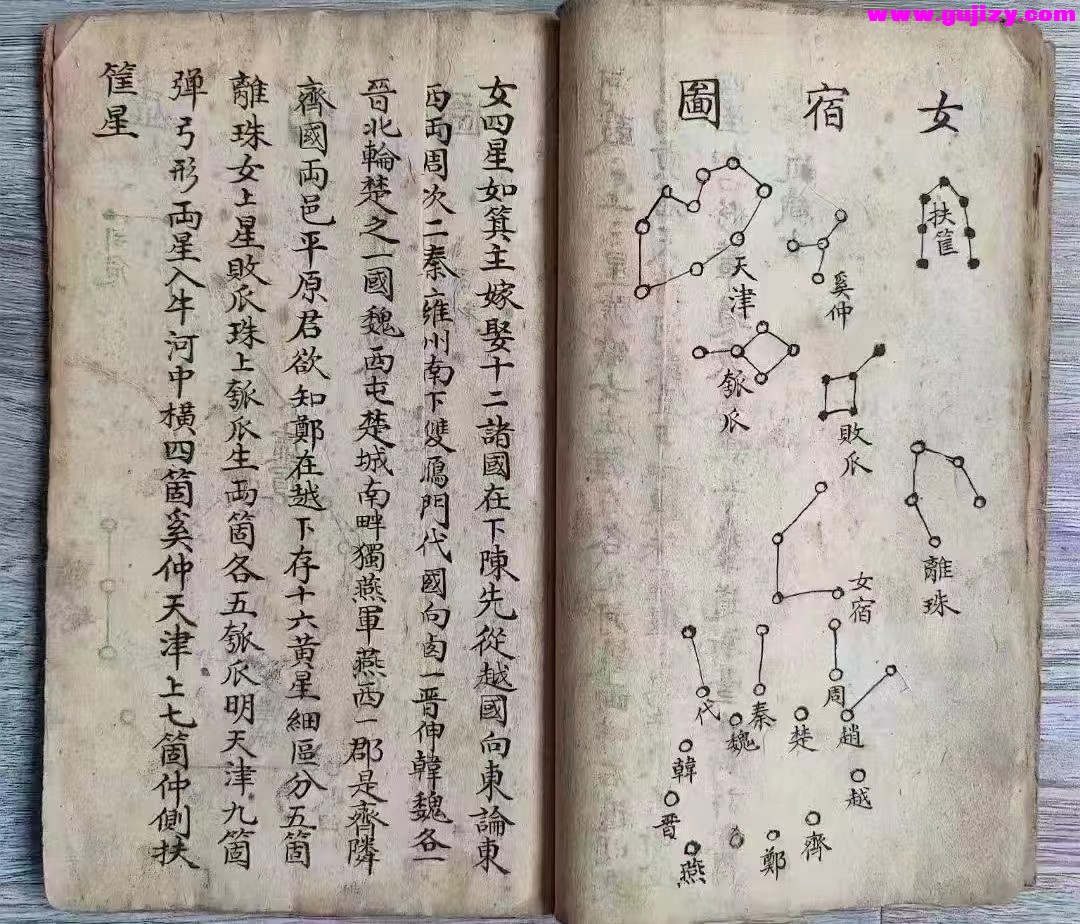 www.gujizy.com
女宿圖
扶筐
奚仲
天津
瓠瓜
敗瓜
離珠
女宿
周
秦
代
趙
楚
魏
韓
越
晋
齊
鄭
燕
女四星如箕主嫁娶十二諸國在下陳先從越國向東論東
西両周次二秦雍州南下雙鴈門代國向西一晋伸韓魏各一
晋北輪楚之一國魏西屯楚城南畔獨燕軍燕西一郡是齊隣
齊國両邑平原君欲知鄭在越下存十六黃星細區分五箇
離珠女上星敗瓜珠上瓠瓜生両箇各五瓠瓜明天津九箇
弹弓形両星入牛河中橫四箇奚仲天津上七箇仲側扶
筐星